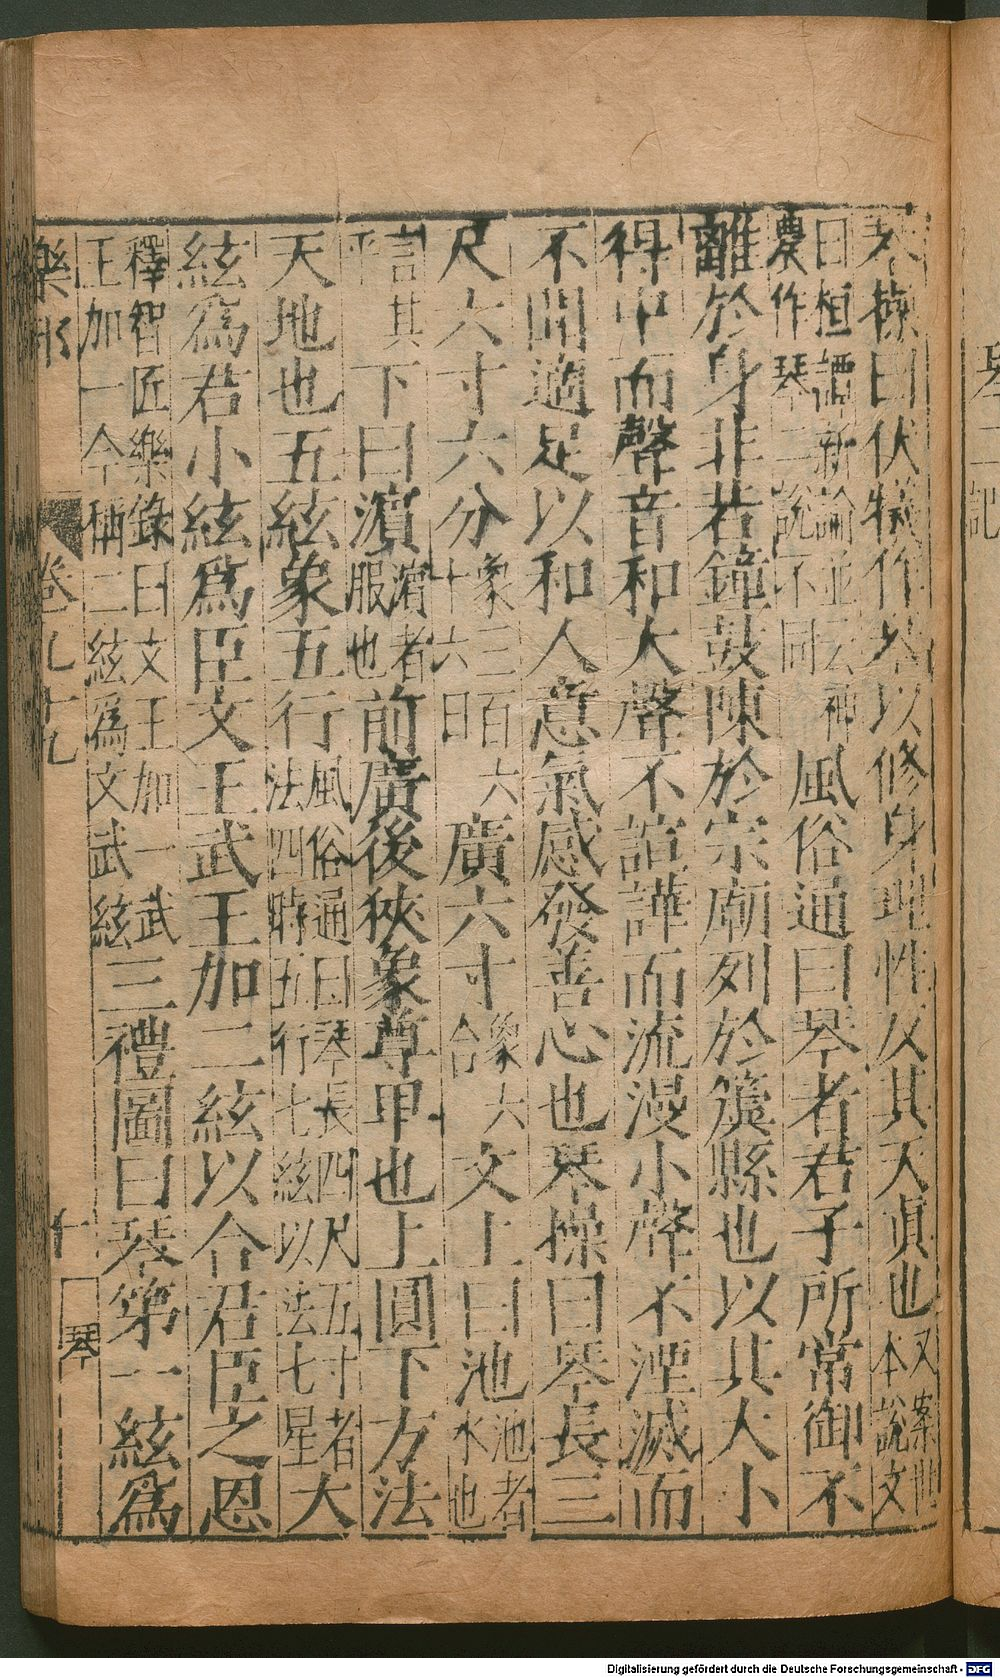 琴操曰伏犧作琴以修身理性反其天真也又案世本說文
曰桓譚新論並云神農作琴二說不同風俗通曰琴者君子所常御不
離於身非若鐘鼓陳於宗廟列於簴縣也以其大小
得中而聲音和大聲不諠譁而流漫小聲不湮滅而
不聞適足以和人意氣感發善心也琴操曰琴長三
尺六寸六分象三百六十六日廣六寸象六合文上曰池池者水也
言其平下曰濵濵者服也前廣後狹象尊卑也上圓下方法
天地也五絃象五行風俗通曰琴長四尺五寸者法四時五行七絃以法七星大
絃爲君小絃爲臣文王武王加二絃以合君臣之恩
釋智匠樂錄曰文王加一武王加一今稱二絃爲文武絃三禮圖曰琴第一絃爲
樂部 卷九十九 十 琴
琴二 記
Digitalisierung gefördert durch die Deutsche Forschungsgemeinschaft - DFG